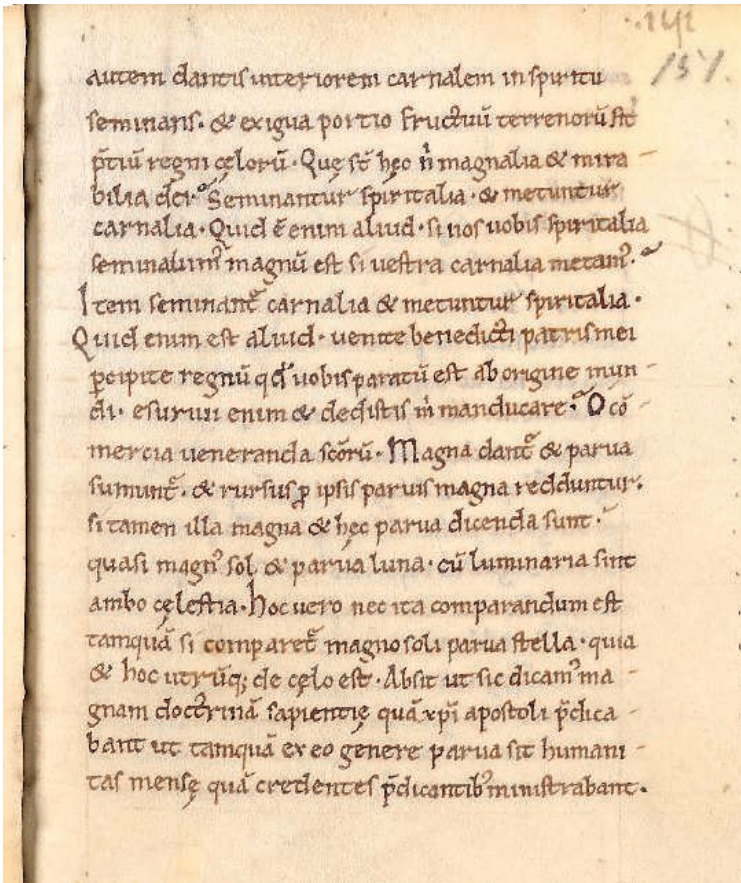 157.
autem dantis interiorem carnalem in spiritu
seminans. & exigua portio fructuū terrenorū fit
p̄tiū regni cęlorū. Quę st̄ hęc n̄ magnalia & mira-
bilia dei? Seminantur spiritalia. & metuntur
carnalia. Quid ē enim aliud. si nos uobis spiritalia
seminauim᾽ magnū est si uestra carnalia metam᾽.
Item seminant᷑ carnalia & metuntur spiritalia.
Quid enim est aliud. uenite benedicti patris mei
ꝑcipite regnū qd̄ uobis paratū est ab origine mun-
di. esuriui enim & dedistis m̄ manducare. O cō-
mercia ueneranda scōrū. Magna dant᷑ & parua
sumunt᷑. & rursus ꝑ ipsis paruis magna redduntur.
si tamen illa magna & hęc parua dicenda sunt.
quasi magn᾽ sol & parua luna. cū luminaria sint
ambo cęlestia. hoc uero nec ita comparandum est
tamquā si comparet᷑ magno soli parua stella. quia
& hoc utrūq; de cęlo est. Absit ut sic dicam᾽ ma-
gnam doctrinā sapientię quā xp̄i apostoli p̄dica-
bant ut tamquā ex eo genere parua sit humani-
tas mensę quā credentes p̄dicantib᾽ ministrabant.